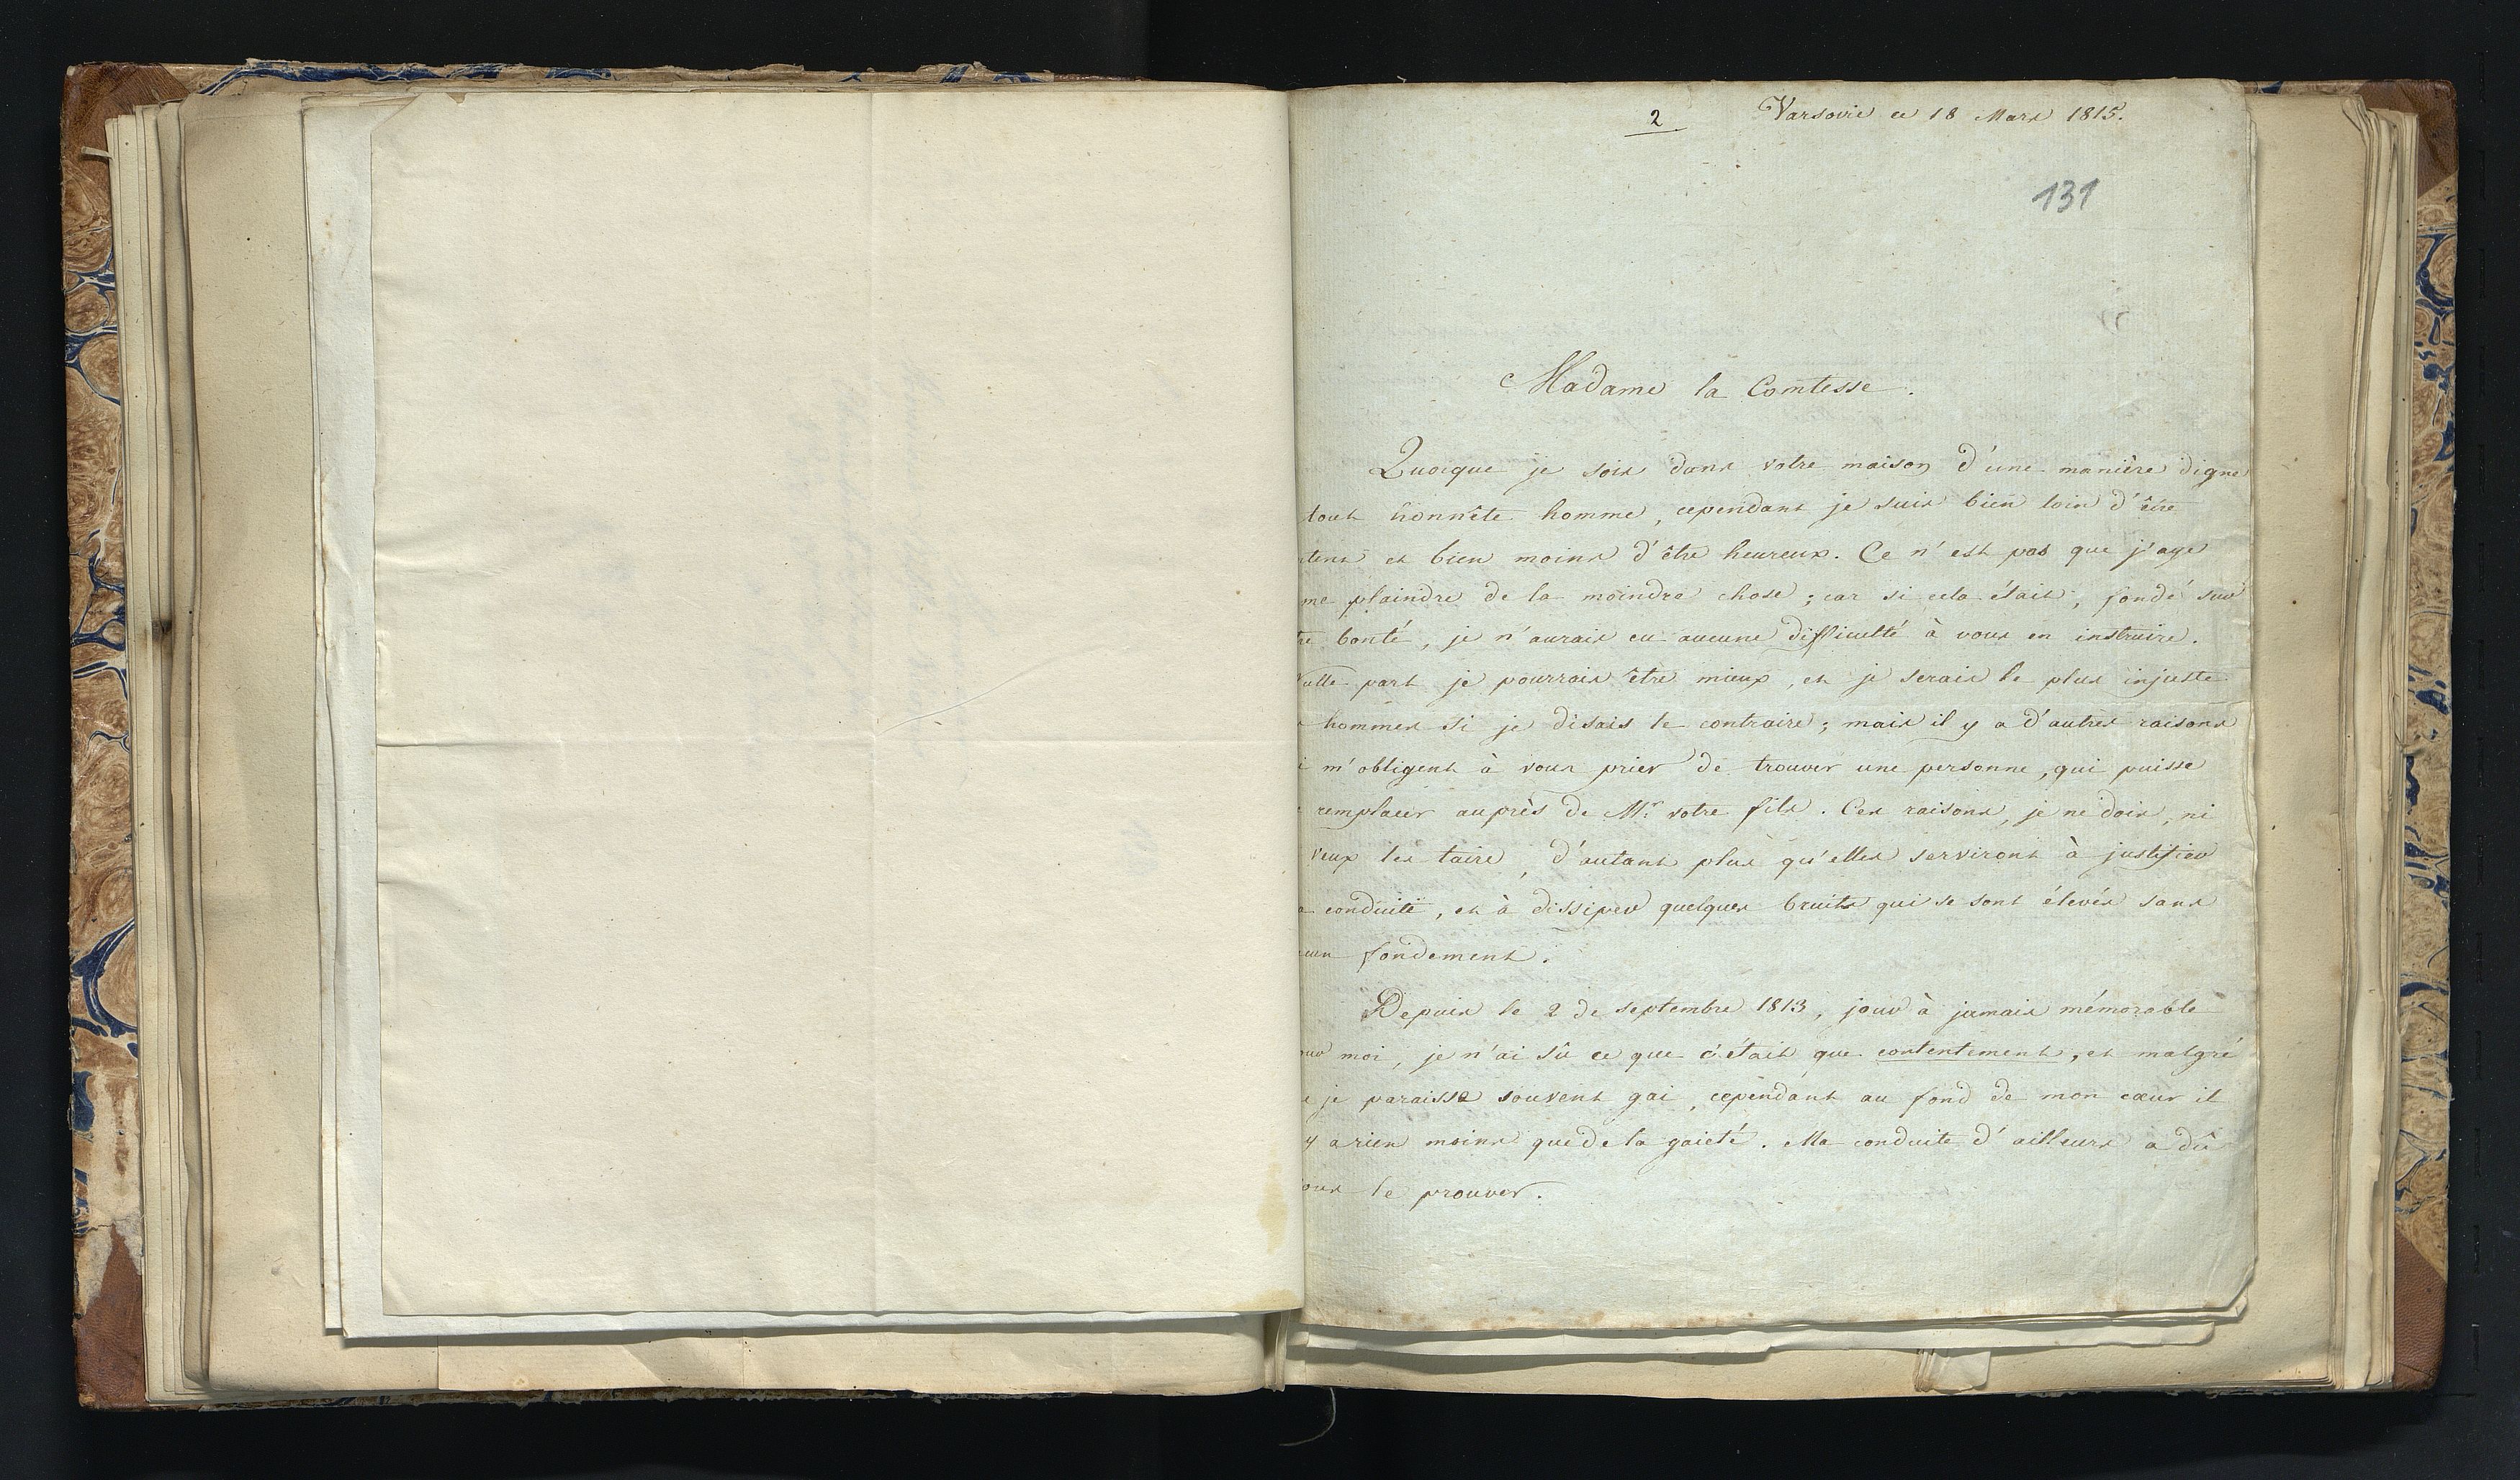 2 Varsovie ce 18 Mars 1815.
131
Madame la Comtesse.
Quoique je sois dans votre maison d'une manière digne
tout honnête homme, cependant je suis bien loin d'être
tent et bien moins d'être heureux. Ce n'est pas que j'aye
me plaindre de la moindre chose; car si cela était, fondé sur
re bonté, je n'aurais eu aucune difficulté à vous en instruire.
Nulle part je pourrais être mieux, et je serais le plus injuste
hommes si je disais le contraire; mais il y a d'autres raisons
i m'obligent à vous prier de trouver une personne, qui puisse
remplacer auprès de Mr votre fils. Ces raisons, je ne dois, ni
veux les taire, d'autant plus qu'elles serviront à justifier
a conduite, et à dissiper quelques bruits qui se sont élevés sans
cun fondement.
Depuis le 2 de septembre 1813, jour à jamais mémorable
our moi, je n'ai sû ce que c'était que contentement, et malgré
e je paraisse souvent gai, cependant au fond de mon cœur il
y a rien moins que de la gaieté. Ma conduite d'ailleurs a dû
ous le prouver.